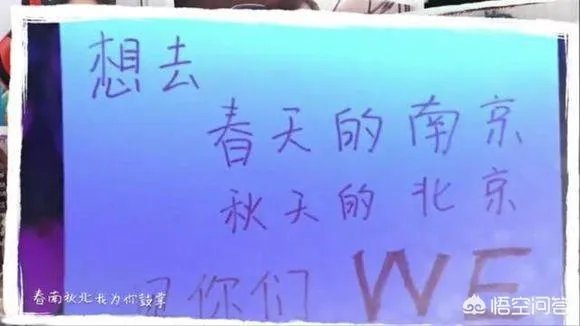 想去
春天的南京
秋天的北京
你们 WE
春南秋北我为你鼓掌
悟空问答